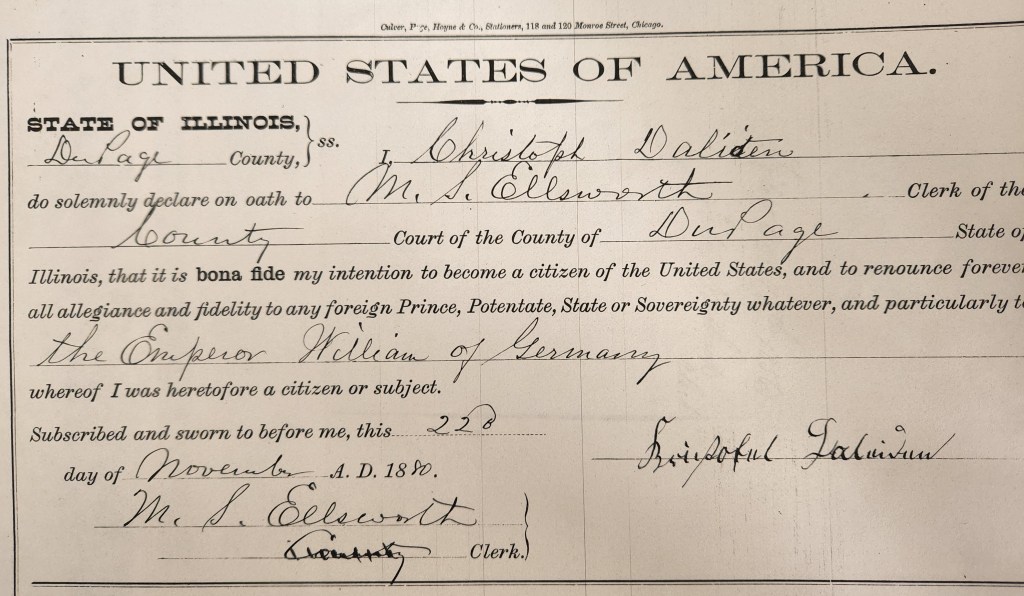 Culver, Page, Hoyne & Co., Stationers, 118 and 120 Monroe Street, Chicago.
UNITED STATES OF AMERICA.
STATE OF ILLINOIS,
DuPage County, } ss. I, Christoph Daliden
do solemnly declare on oath to M. S. Ellsworth Clerk of the
County Court of the County of DuPage State of
Illinois, that it is bona fide my intention to become a citizen of the United States, and to renounce forever
all allegiance and fidelity to any foreign Prince, Potentate, State or Sovereignty whatever, and particularly to
the Emperor William of Germany
whereof I was heretofore a citizen or subject.
Subscribed and sworn to before me, this 22d
day of November A. D. 1880.
M. S. Ellsworth
Clerk.